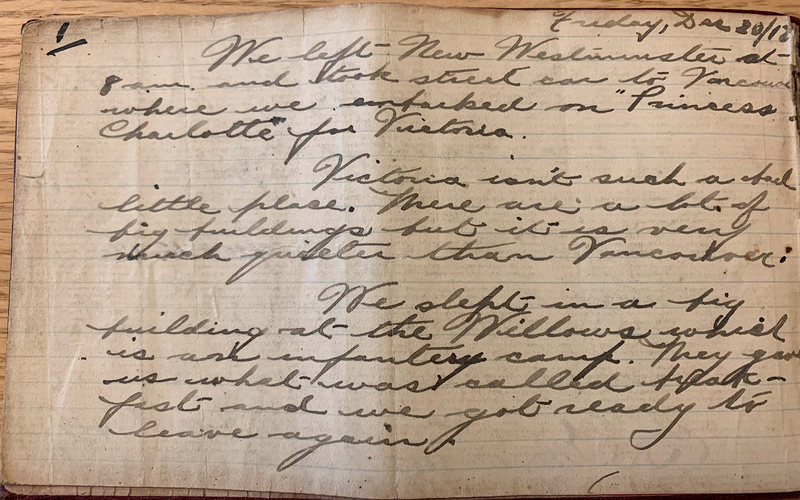 1
Friday, Dec 20/18
We left New Westminster at
8 a.m. and took street car to Vancouver
where we embarked on "Princess
Charlotte" for Victoria.
Victoria isn't such a bad
little place. There are a lot of
big buildings but it is very
much quieter than Vancouver.
We slept in a big
building at the Willows which
is an infantry camp. They gave
us what was called break-
fast and we got ready to
leave again.